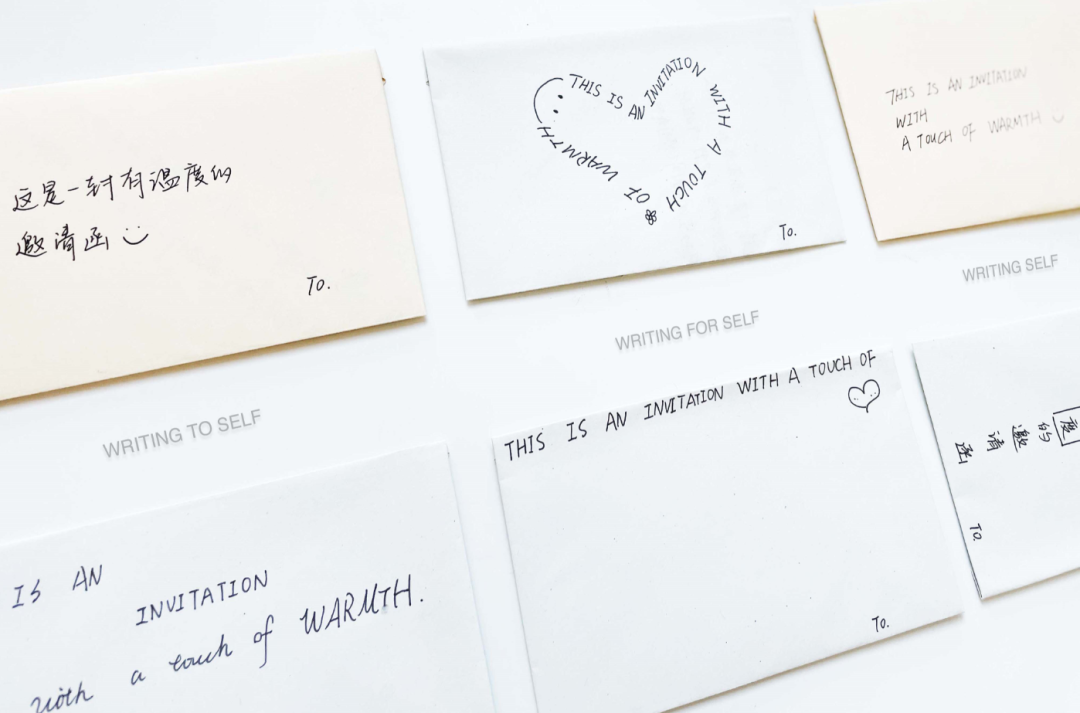 这是一封有温度的
邀请函
To.
WRITING TO SELF
THIS IS AN INVITATION WITH A TOUCH OF WARMTH
To.
WRITING FOR SELF
THIS IS AN INVITATION
WITH
A TOUCH OF WARMTH
WRITING SELF
IS AN
INVITATION
with a touch of WARMTH.
THIS IS AN INVITATION WITH A TOUCH OF
To.
度的邀请函
To.